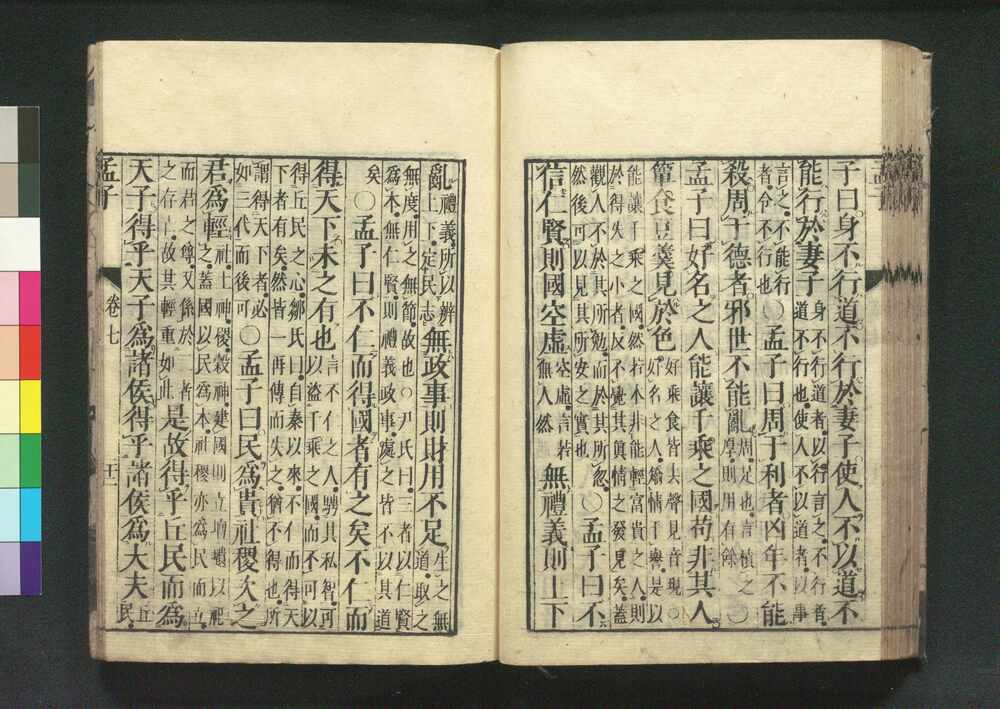 子曰身不行道不行於妻子使人不以道不
能行於妻子身不行道者以行言之不行者
道不行也使人不以道者以事
言之不能行
者令不行也○孟子曰周于利者凶年不能
殺周于德者邪世不能亂周足也言積之
厚則用有餘○
孟子曰好名之人能讓千乘之國苟非其人
簞食豆羹見於色好乘食皆去聲見音現○
好名之人矯情干譽是以
能讓千乘之國然若本非能輕富貴之人則
於得失之小者反不覺其真情之發見矣蓋
觀人不於其所勉而於其所忽
然後可以見其所安之實也○孟子曰不
信仁賢則國空虛空虛言若
無人然無禮義則上下
亂禮義所以辨
上下定民志無政事則財用不足生之無
道取之
無度用之無節故也○尹氏曰三者以仁賢
爲本無仁賢則禮義政事處之皆不以其道
矣○孟子曰不仁而得國者有之矣不仁而
得天下未之有也言不仁之人騁其私智可
以盜千乘之國而不可以
得丘民之心鄒氏曰自秦以來不仁而得天
下者有矣然皆一再傳而失之猶不得也所
謂得天下者必
如三代而後可○孟子曰民爲貴社稷次之
君爲輕社土神稷穀神建國則立壇壝以祀
之蓋國以民爲本社稷亦爲民而立
而君之尊又係於二者
之存亡故其輕重如此是故得乎丘民而爲
天子得乎天子爲諸侯得乎諸侯爲大夫丘
民
孟子
卷七